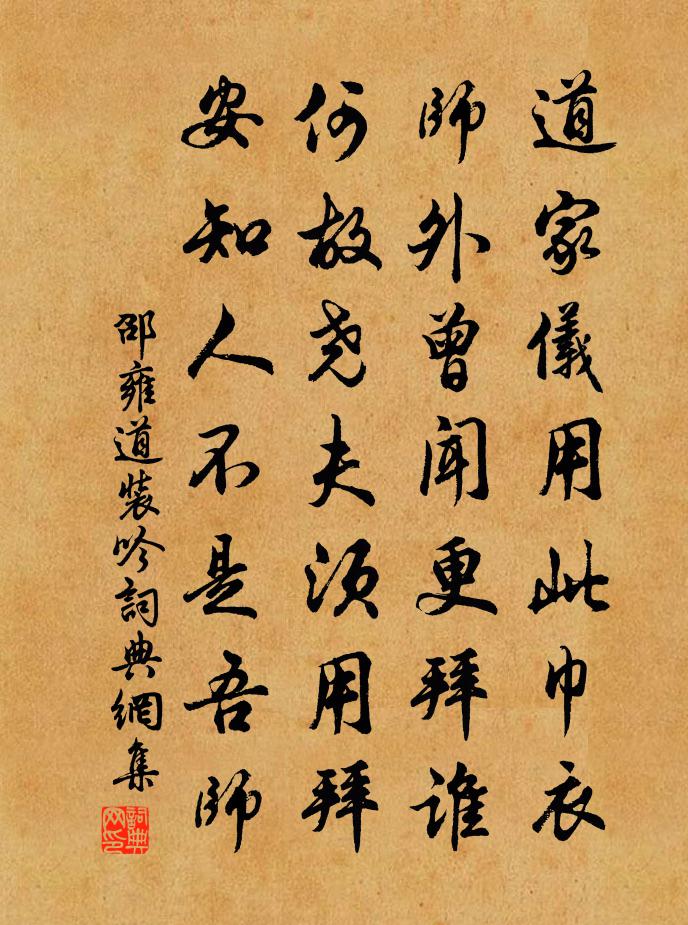 道家儀用此巾衣
師外曾聞更拜誰
何故尧夫須用拜
安知人不是吾師
邵雍道裝吟詞典網集
詞典網印